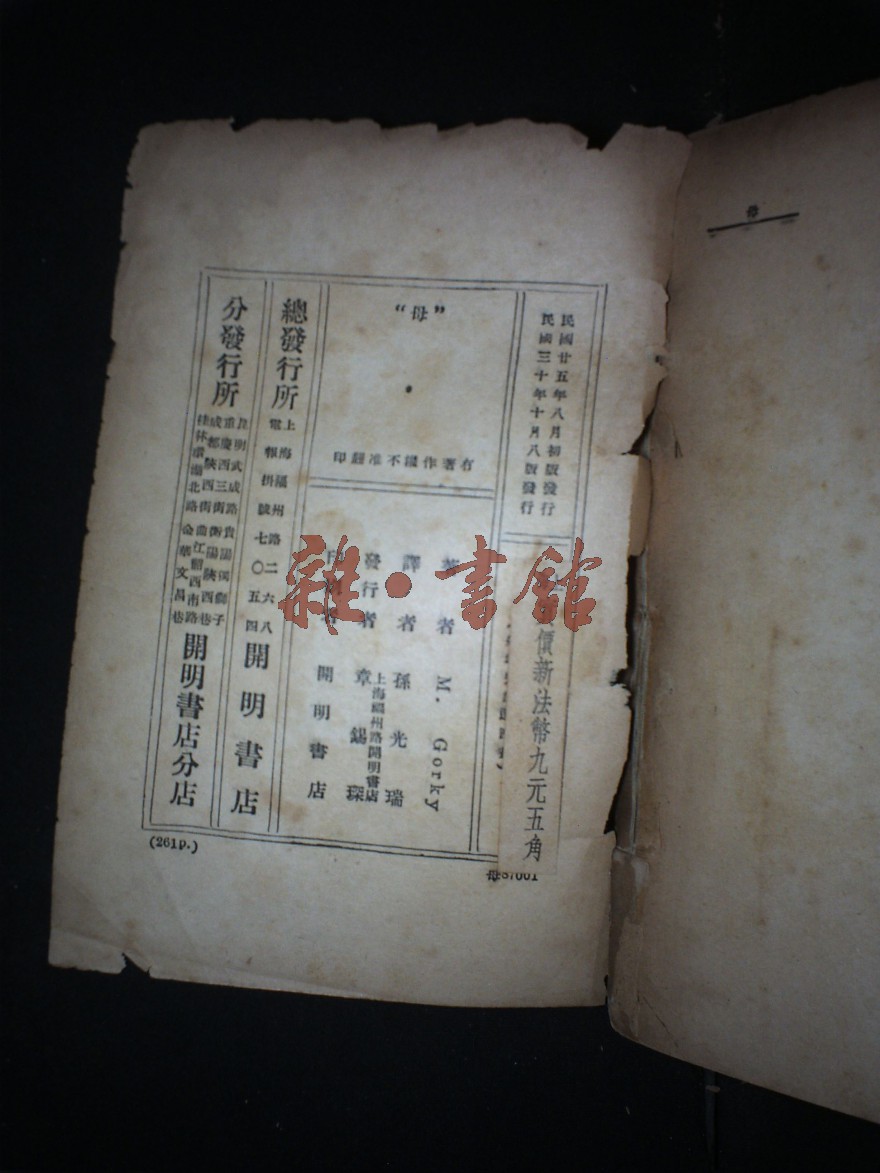 民國廿五年八月初版發行
民國三十年十月八版發行
價新法幣九元五角
“母”
有著作權不准翻印
著者 M. Gorky
譯者 孫光瑞
發行者 章錫琛
上海福州路開明書店
開明書店
總發行所
上海福州路二六八
電報掛號七〇五四
開明書店
分發行所
昆明武成路 貴陽獅子
重慶西三街 衡陽陝西巷
成都陝西街 曲江 西南路
桂林 湖北路 金華文昌巷
開明書店分店
(261P.)
雜·書館